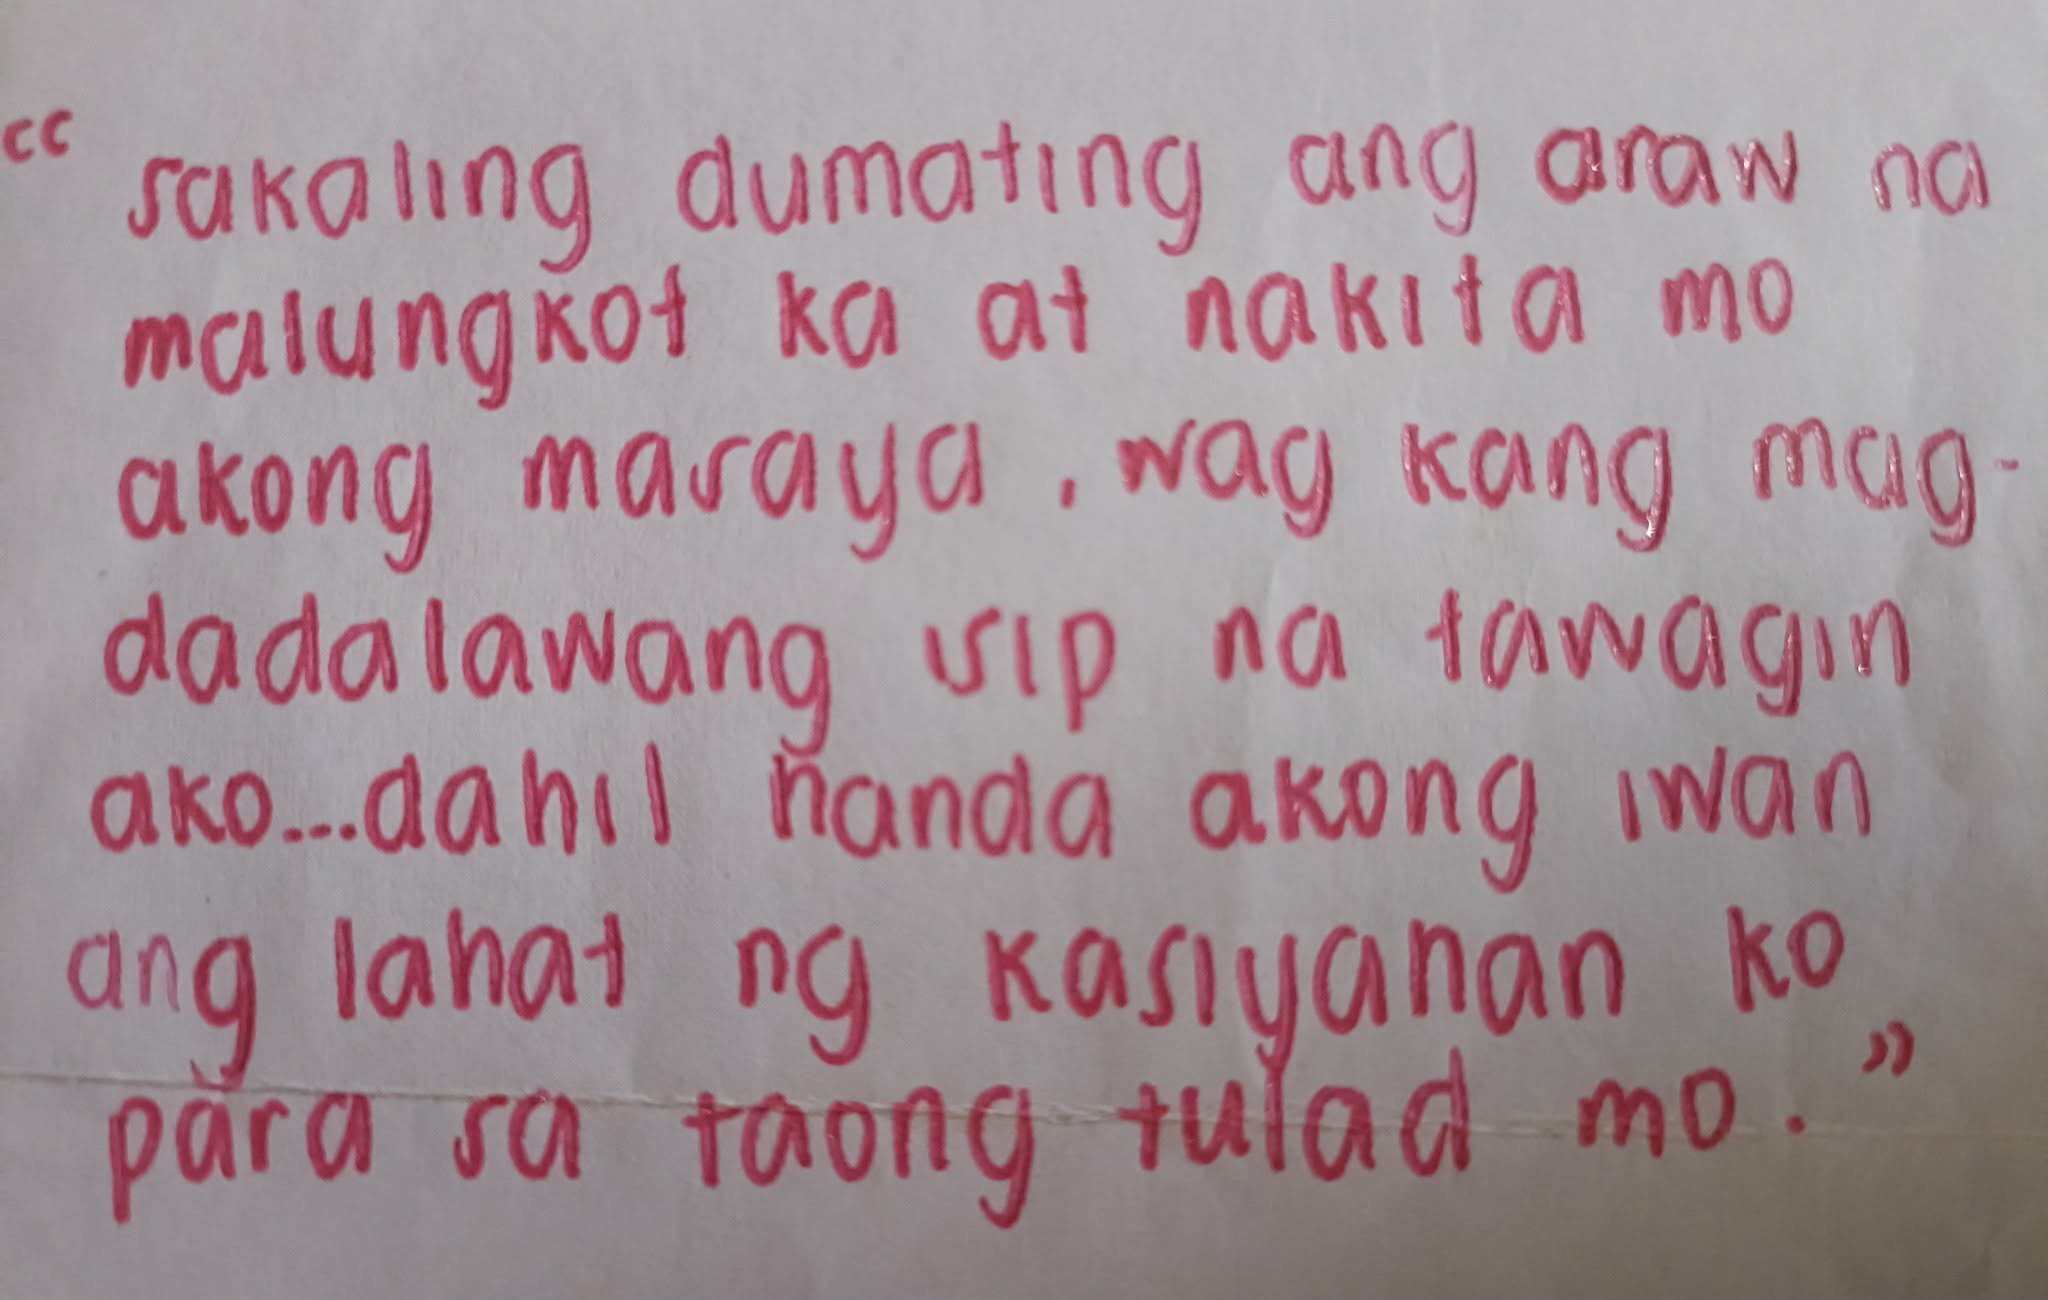 “ sakaling dumating ang araw na
malungkot ka at nakita mo
akong masaya, wag kang mag-
dadalawang isip na tawagin
ako...dahil handa akong iwan
ang lahat ng kasiyahan ko
para sa taong tulad mo. ”